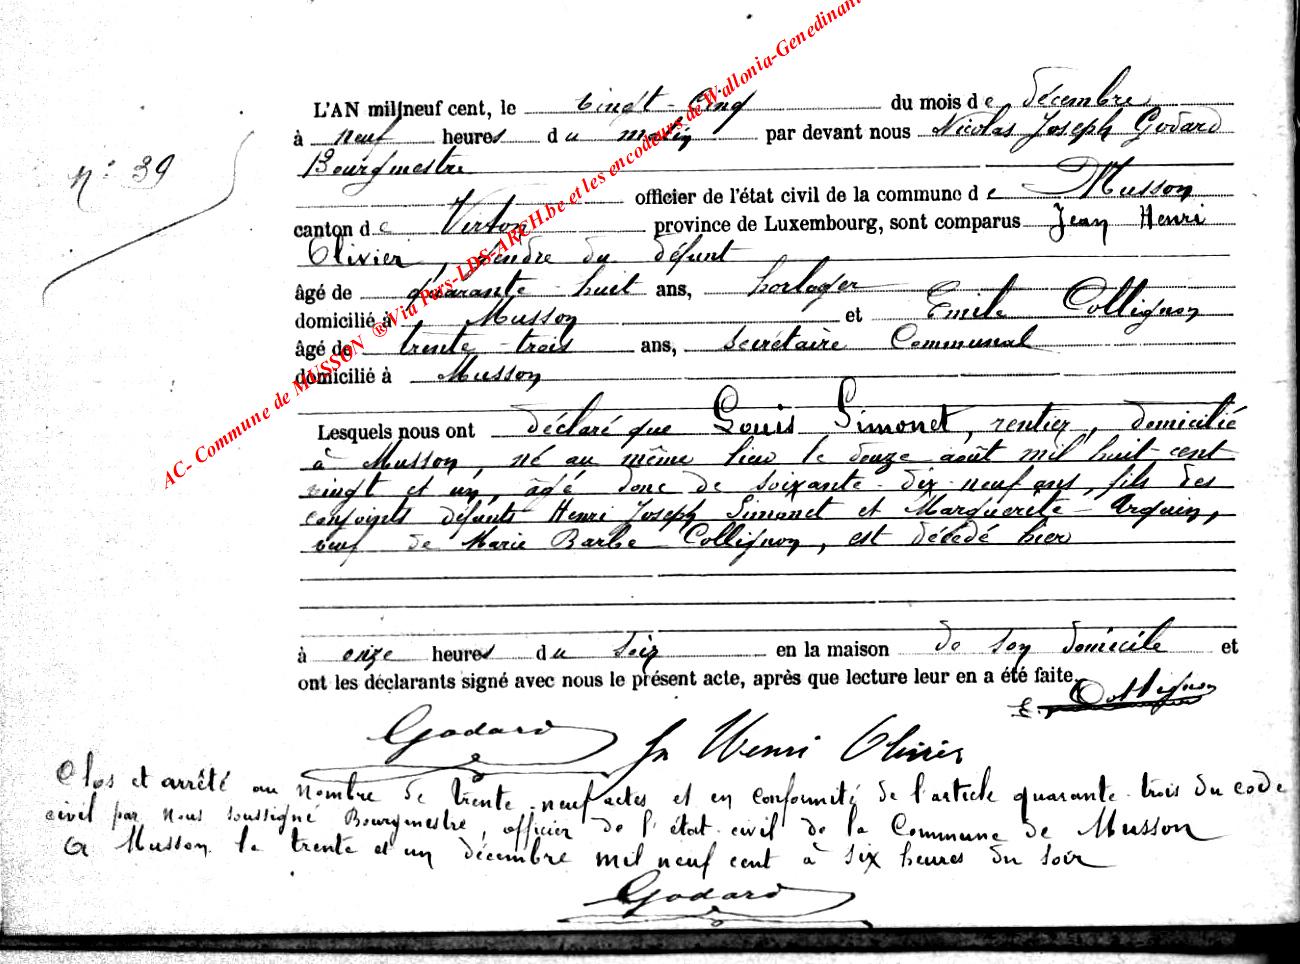 L'AN mil neuf cent, le vingt-cinq du mois de décembre
à neuf heures du matin par devant nous Nicolas Joseph Godard
Bourgmestre
officier de l'état civil de la commune de Musson
canton de Virton province de Luxembourg, sont comparus Jean Henri
Olivier, gendre du défunt
âgé de quarante-huit ans, horloger
domicilié à Musson et Emile Collignon
âgé de trente-trois ans, secrétaire Communal
domicilié à Musson
Lesquels nous ont déclaré que Louis Simonet, rentier, domicilié
à Musson, né au même lieu le douze août mil huit cent
vingt et un, âgé donc de soixante-dix-neuf ans, fils des
conjoints défunts Henri Joseph Simonet et Marguerite Arquin,
veuf de Marie Barbe Collignon, est décédé hier
à onze heures du soir en la maison de son domicile et
ont les déclarants signé avec nous le présent acte, après que lecture leur en a été faite.
E. Collignon
Godard Jn Henri Olivier
Clos et arrêté au nombre de trente-neuf actes et en conformité de l'article quarante-trois du code
civil par nous soussigné Bourgmestre, officier de l'état-civil de la Commune de Musson
A Musson le trente et un décembre mil neuf cent à six heures du soir
Godard
n° 39
AC- Commune de MUSSON ®Via Pars-LDS-ARCH.be et les encodeurs de Wallonia-Genedinant